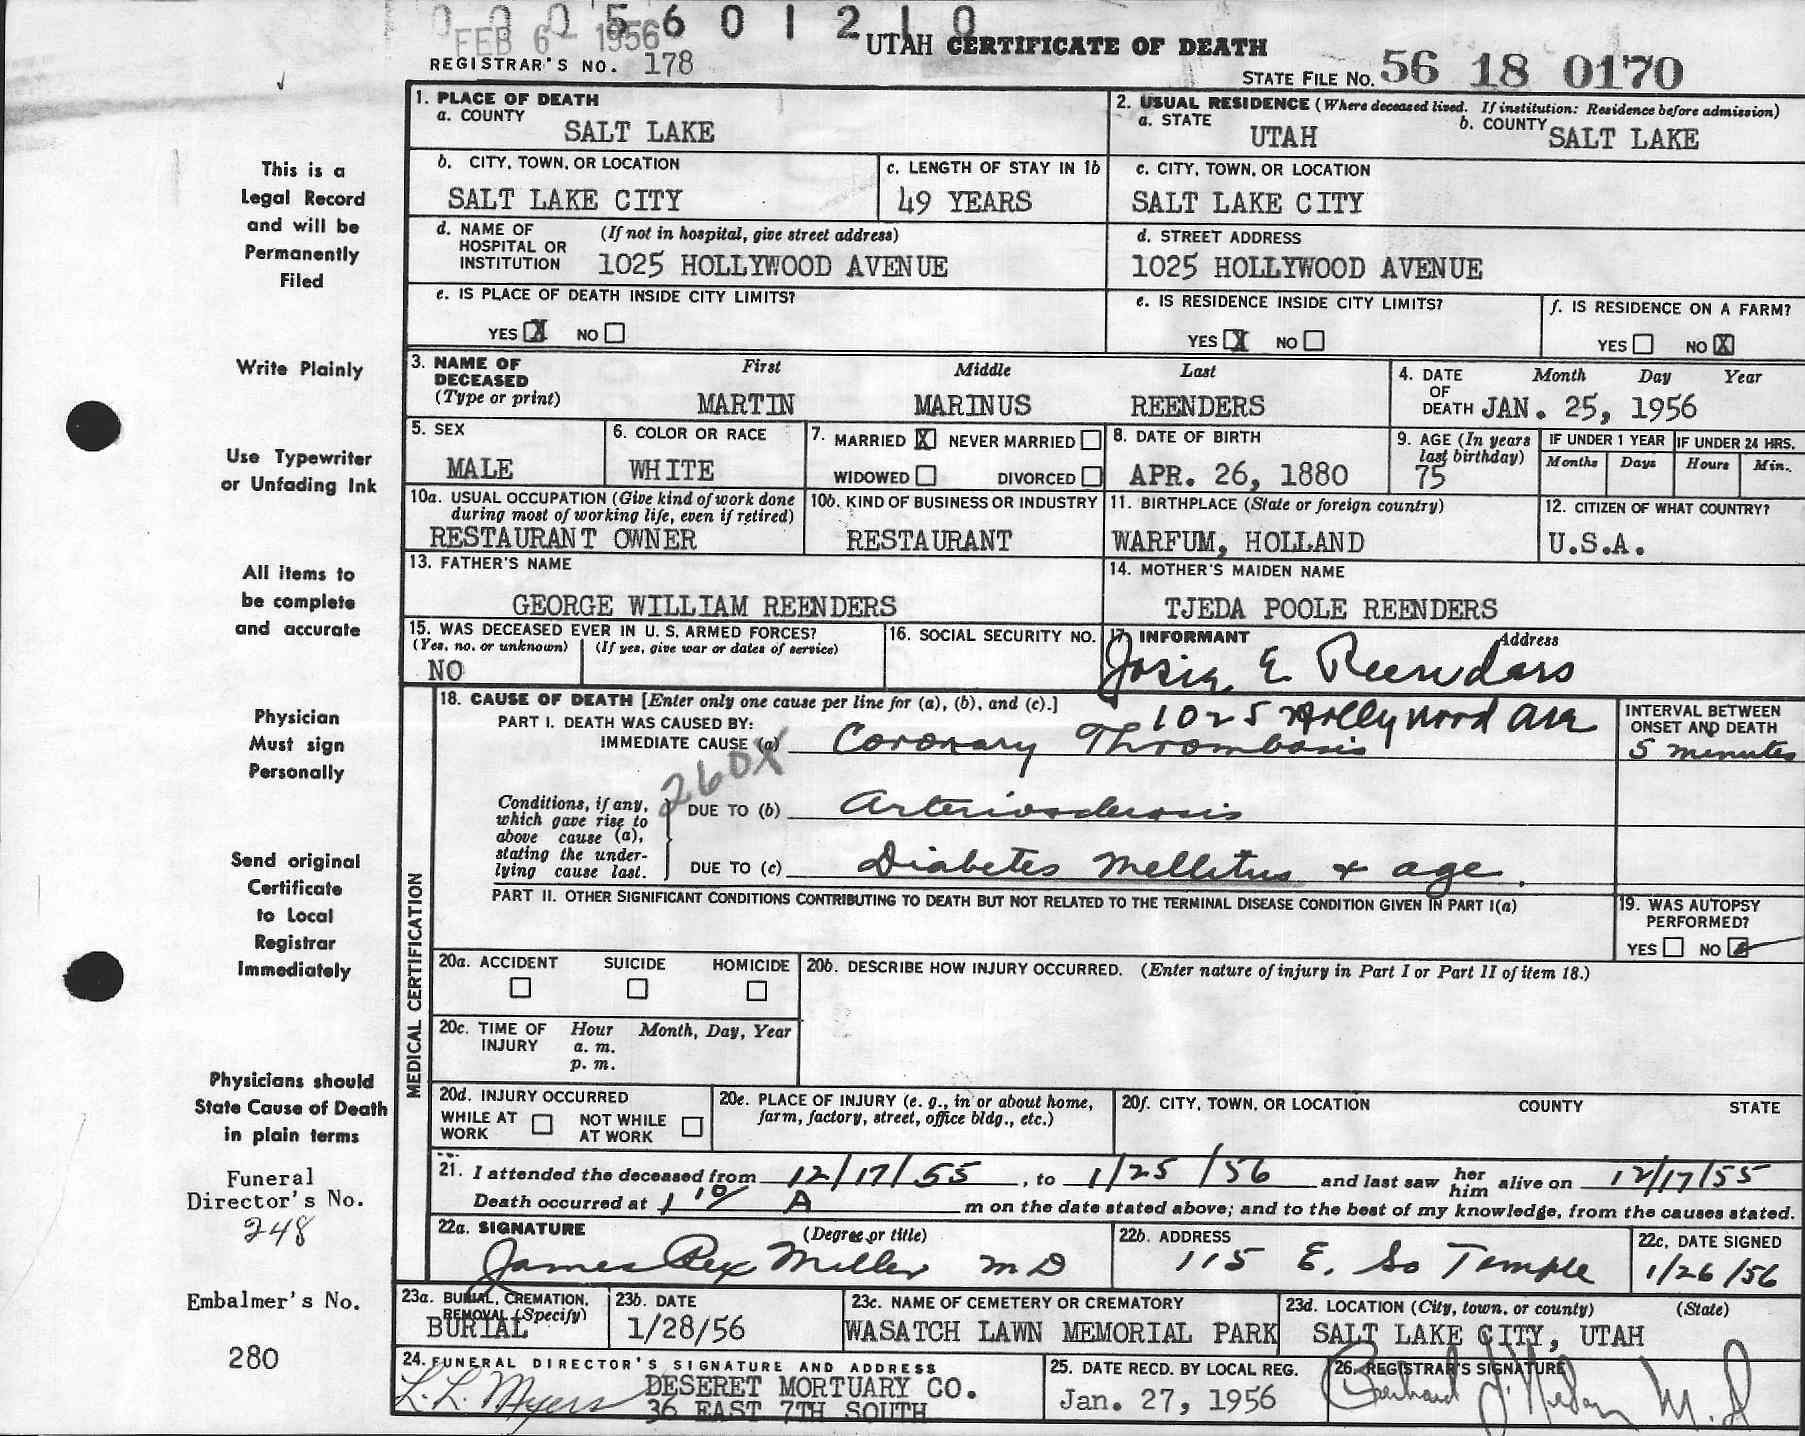 0005601210
FEB 6 - 1956
UTAH CERTIFICATE OF DEATH
REGISTRAR'S NO. 178
STATE FILE NO. 56 18 0170
1. PLACE OF DEATH
a. COUNTY
SALT LAKE
2. USUAL RESIDENCE (Where deceased lived. If institution: Residence before admission)
a. STATE UTAH b. COUNTY SALT LAKE
This is a
Legal Record
and will be
Permanently
Filed
b. CITY, TOWN, OR LOCATION
SALT LAKE CITY
c. LENGTH OF STAY IN 1b
49 YEARS
c. CITY, TOWN, OR LOCATION
SALT LAKE CITY
d. NAME OF (If not in hospital, give street address)
HOSPITAL OR
INSTITUTION 1025 HOLLYWOOD AVENUE
d. STREET ADDRESS
1025 HOLLYWOOD AVENUE
e. IS PLACE OF DEATH INSIDE CITY LIMITS?
YES X NO
e. IS RESIDENCE INSIDE CITY LIMITS?
YES X NO
f. IS RESIDENCE ON A FARM?
YES NO X
Write Plainly
3. NAME OF First Middle Last
DECEASED
(Type or print) MARTIN MARINUS REENDERS
4. DATE Month Day Year
OF
DEATH JAN. 25, 1956
Use Typewriter
or Unfading Ink
5. SEX
MALE
6. COLOR OR RACE
WHITE
7. MARRIED X NEVER MARRIED
WIDOWED DIVORCED
8. DATE OF BIRTH
APR. 26, 1880
9. AGE (In years
last birthday)
75
IF UNDER 1 YEAR IF UNDER 24 HRS.
Months Days Hours Min.
10a. USUAL OCCUPATION (Give kind of work done
during most of working life, even if retired)
RESTAURANT OWNER
10b. KIND OF BUSINESS OR INDUSTRY
RESTAURANT
11. BIRTHPLACE (State or foreign country)
WARFUM, HOLLAND
12. CITIZEN OF WHAT COUNTRY?
U.S.A.
All items to
be complete
and accurate
13. FATHER'S NAME
GEORGE WILLIAM REENDERS
14. MOTHER'S MAIDEN NAME
TJEDA POOLE REENDERS
15. WAS DECEASED EVER IN U. S. ARMED FORCES?
(Yes, no. or unknown) (If yes, give war or dates of service)
NO
16. SOCIAL SECURITY NO.
17. INFORMANT Address
Josie E Reenders
1025 Hollywood Ave
Physician
Must sign
Personally
MEDICAL CERTIFICATION
18. CAUSE OF DEATH [Enter only one cause per line for (a), (b), and (c).]
PART I. DEATH WAS CAUSED BY:
IMMEDIATE CAUSE (a) Coronary Thrombosis
INTERVAL BETWEEN
ONSET AND DEATH
5 minutes
260X
Conditions, if any,
which gave rise to
above cause (a),
stating the under-
lying cause last.
DUE TO (b) Arteriosclerosis
DUE TO (c) Diabetes Mellitus + age.
Send original
Certificate
to Local
Registrar
Immediately
PART II. OTHER SIGNIFICANT CONDITIONS CONTRIBUTING TO DEATH BUT NOT RELATED TO THE TERMINAL DISEASE CONDITION GIVEN IN PART I(a)
19. WAS AUTOPSY
PERFORMED?
YES NO
20a. ACCIDENT SUICIDE HOMICIDE
20b. DESCRIBE HOW INJURY OCCURRED. (Enter nature of injury in Part I or Part II of item 18.)
20c. TIME OF Hour Month, Day, Year
INJURY a. m.
p. m.
Physicians should
State Cause of Death
in plain terms
20d. INJURY OCCURRED
WHILE AT NOT WHILE
WORK AT WORK
20e. PLACE OF INJURY (e. g., in or about home,
farm, factory, street, office bldg., etc.)
20f. CITY, TOWN, OR LOCATION COUNTY STATE
21. I attended the deceased from 12/17/55, to 1/25/56 and last saw her him alive on 12/17/55
Death occurred at 1 10/ A m on the date stated above; and to the best of my knowledge, from the causes stated.
Funeral
Director's No.
248
22a. SIGNATURE (Degree or title)
James Rex Miller M D
22b. ADDRESS
115 E. So Temple
22c. DATE SIGNED
1/26/56
Embalmer's No.
280
23a. BURIAL, CREMATION,
REMOVAL (Specify)
BURIAL
23b. DATE
1/28/56
23c. NAME OF CEMETERY OR CREMATORY
WASATCH LAWN MEMORIAL PARK
23d. LOCATION (City, town, or county) (State)
SALT LAKE CITY, UTAH
24. FUNERAL DIRECTOR'S SIGNATURE AND ADDRESS
L. L. Myers DESERET MORTUARY CO.
36 EAST 7TH SOUTH
25. DATE RECD. BY LOCAL REG.
Jan. 27, 1956
26. REGISTRAR'S SIGNATURE
M.D